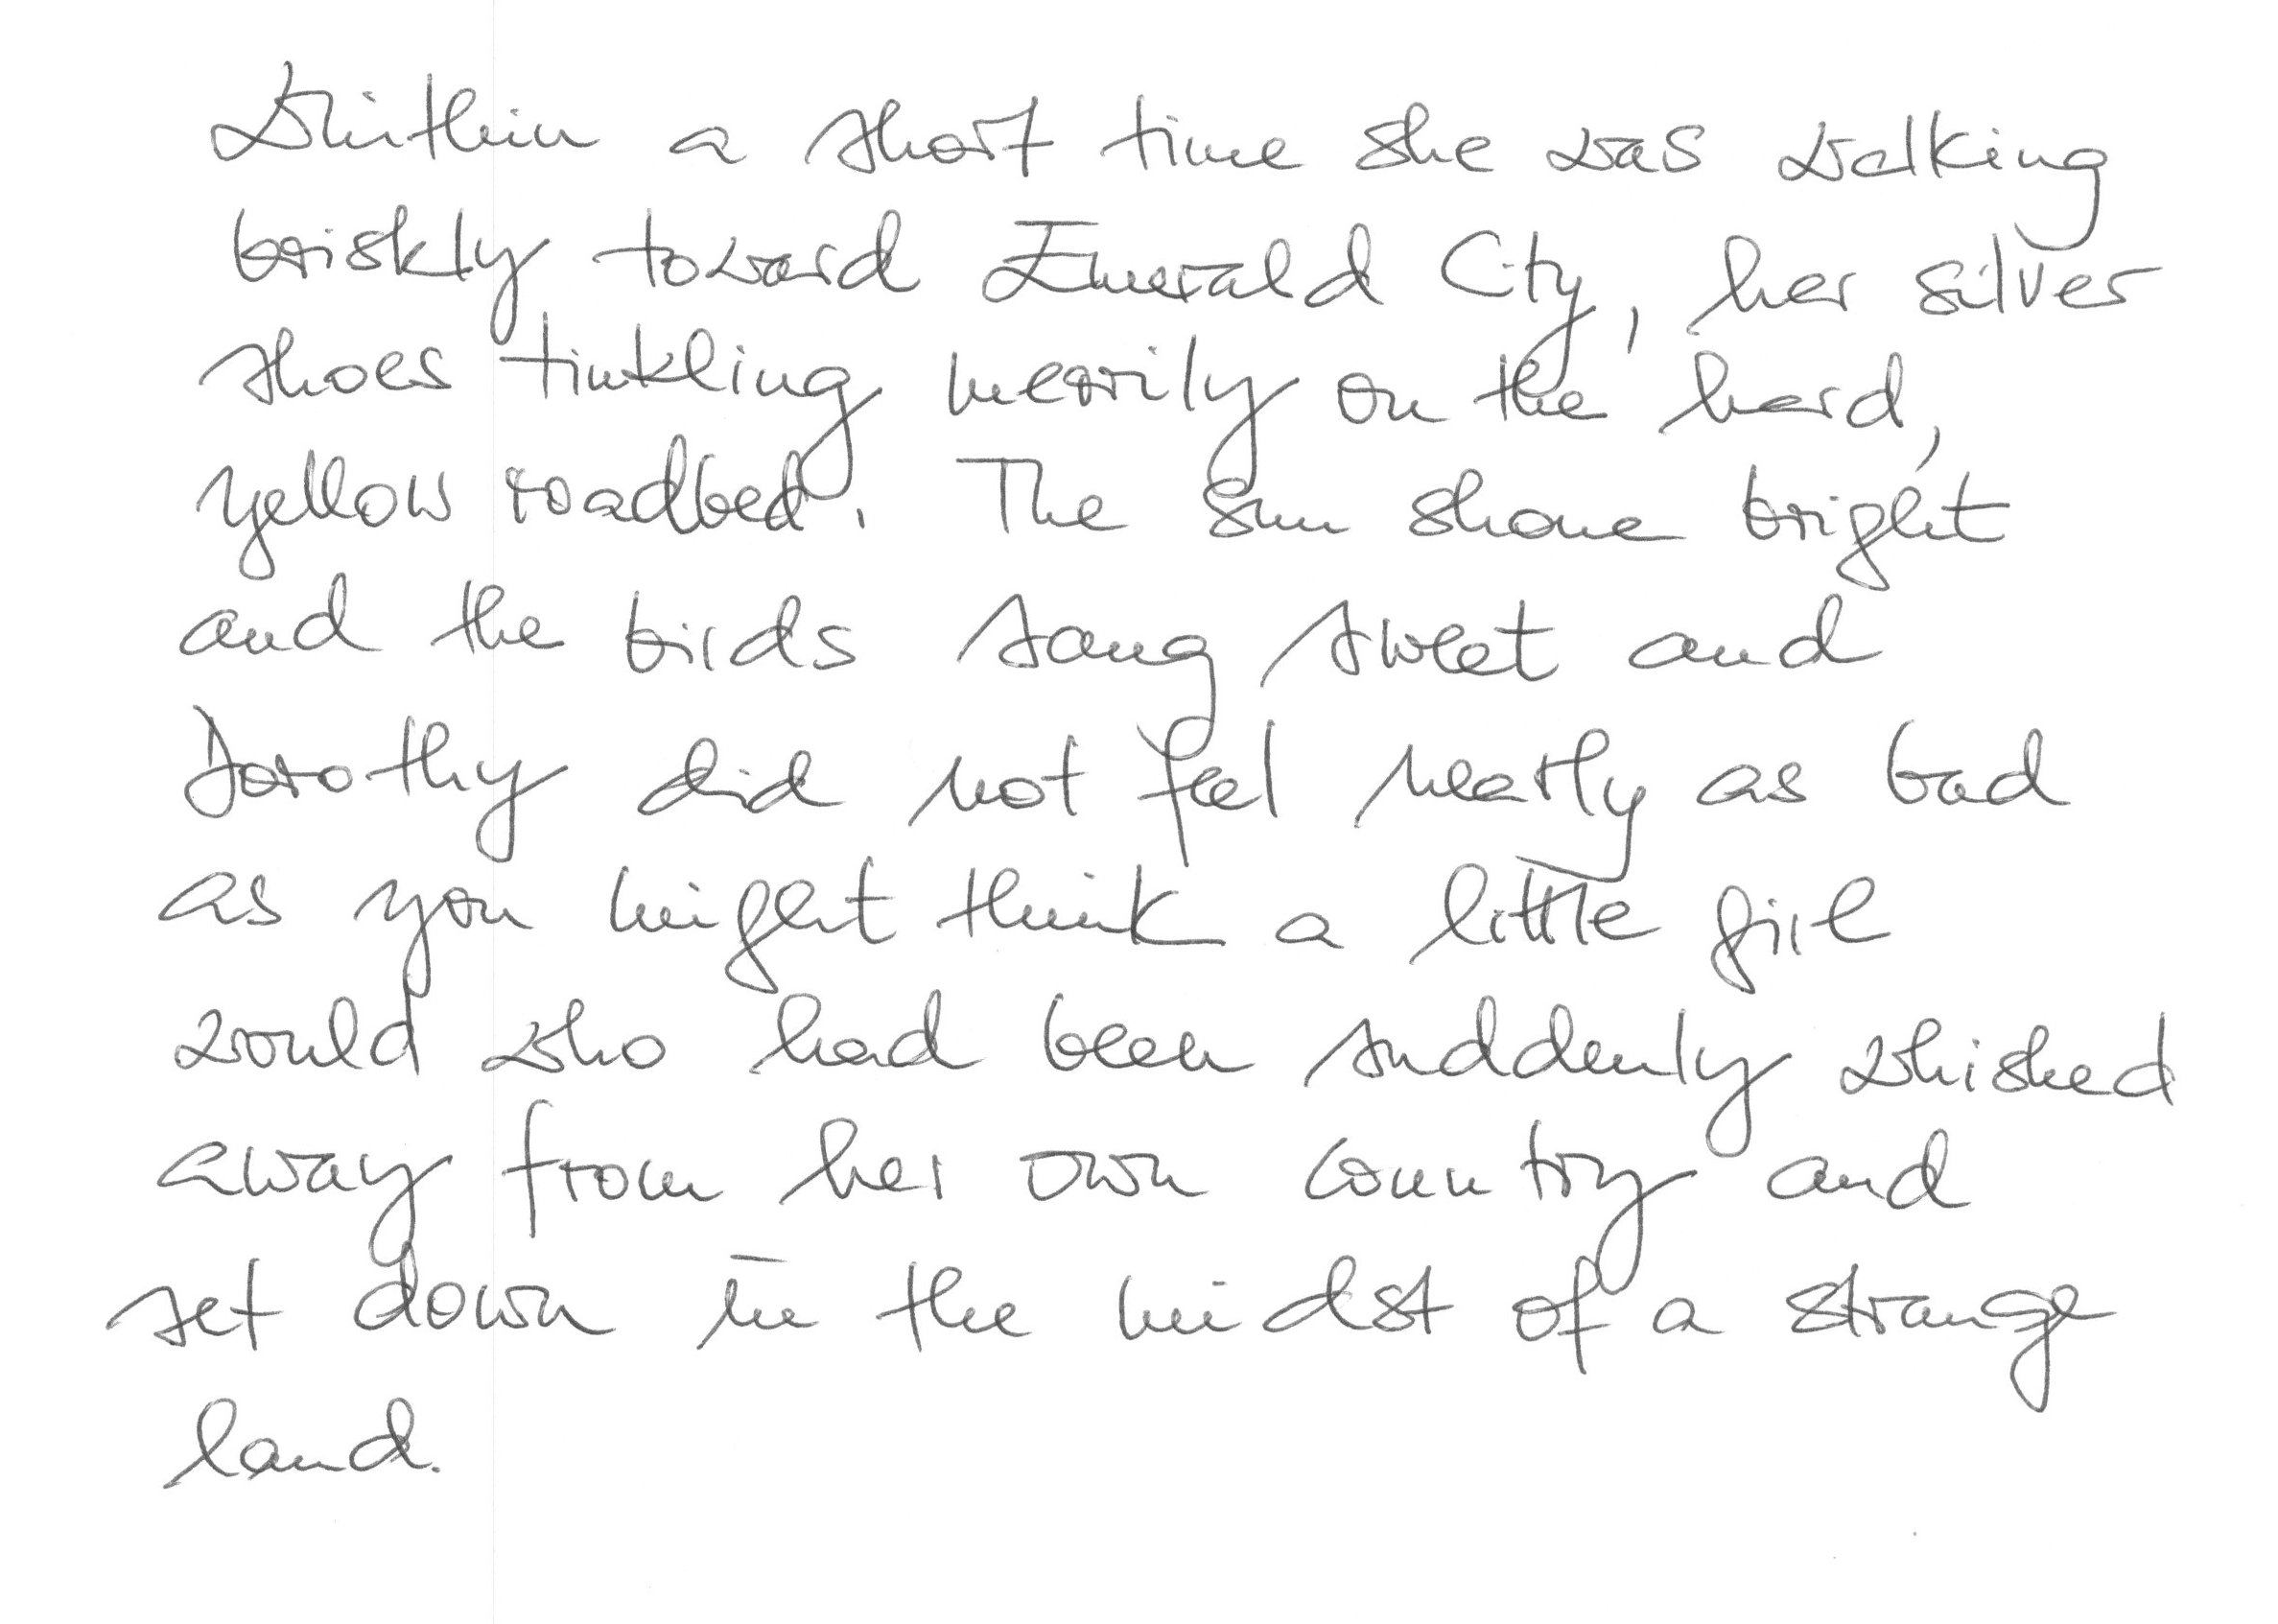 Within a short time she was walking
briskly toward Emerald City, her silver
shoes tinkling merrily on the hard,
yellow roadbed. The sun shone bright
and the birds sang sweet and
Dorothy did not feel nearly as bad
as you might think a little girl
would who had been suddenly whisked
away from her own country and
set down in the midst of a strange
land.